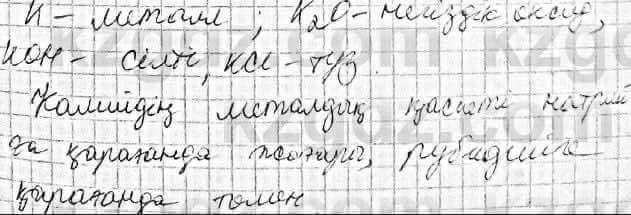 К - металл; K₂O - негіздік оксид,
КОН - сілті, KCl - тұз.
Калийдің металдық қасиеті натрий
ға қарағанда жоғары, рубидийге
қарағанда төмен